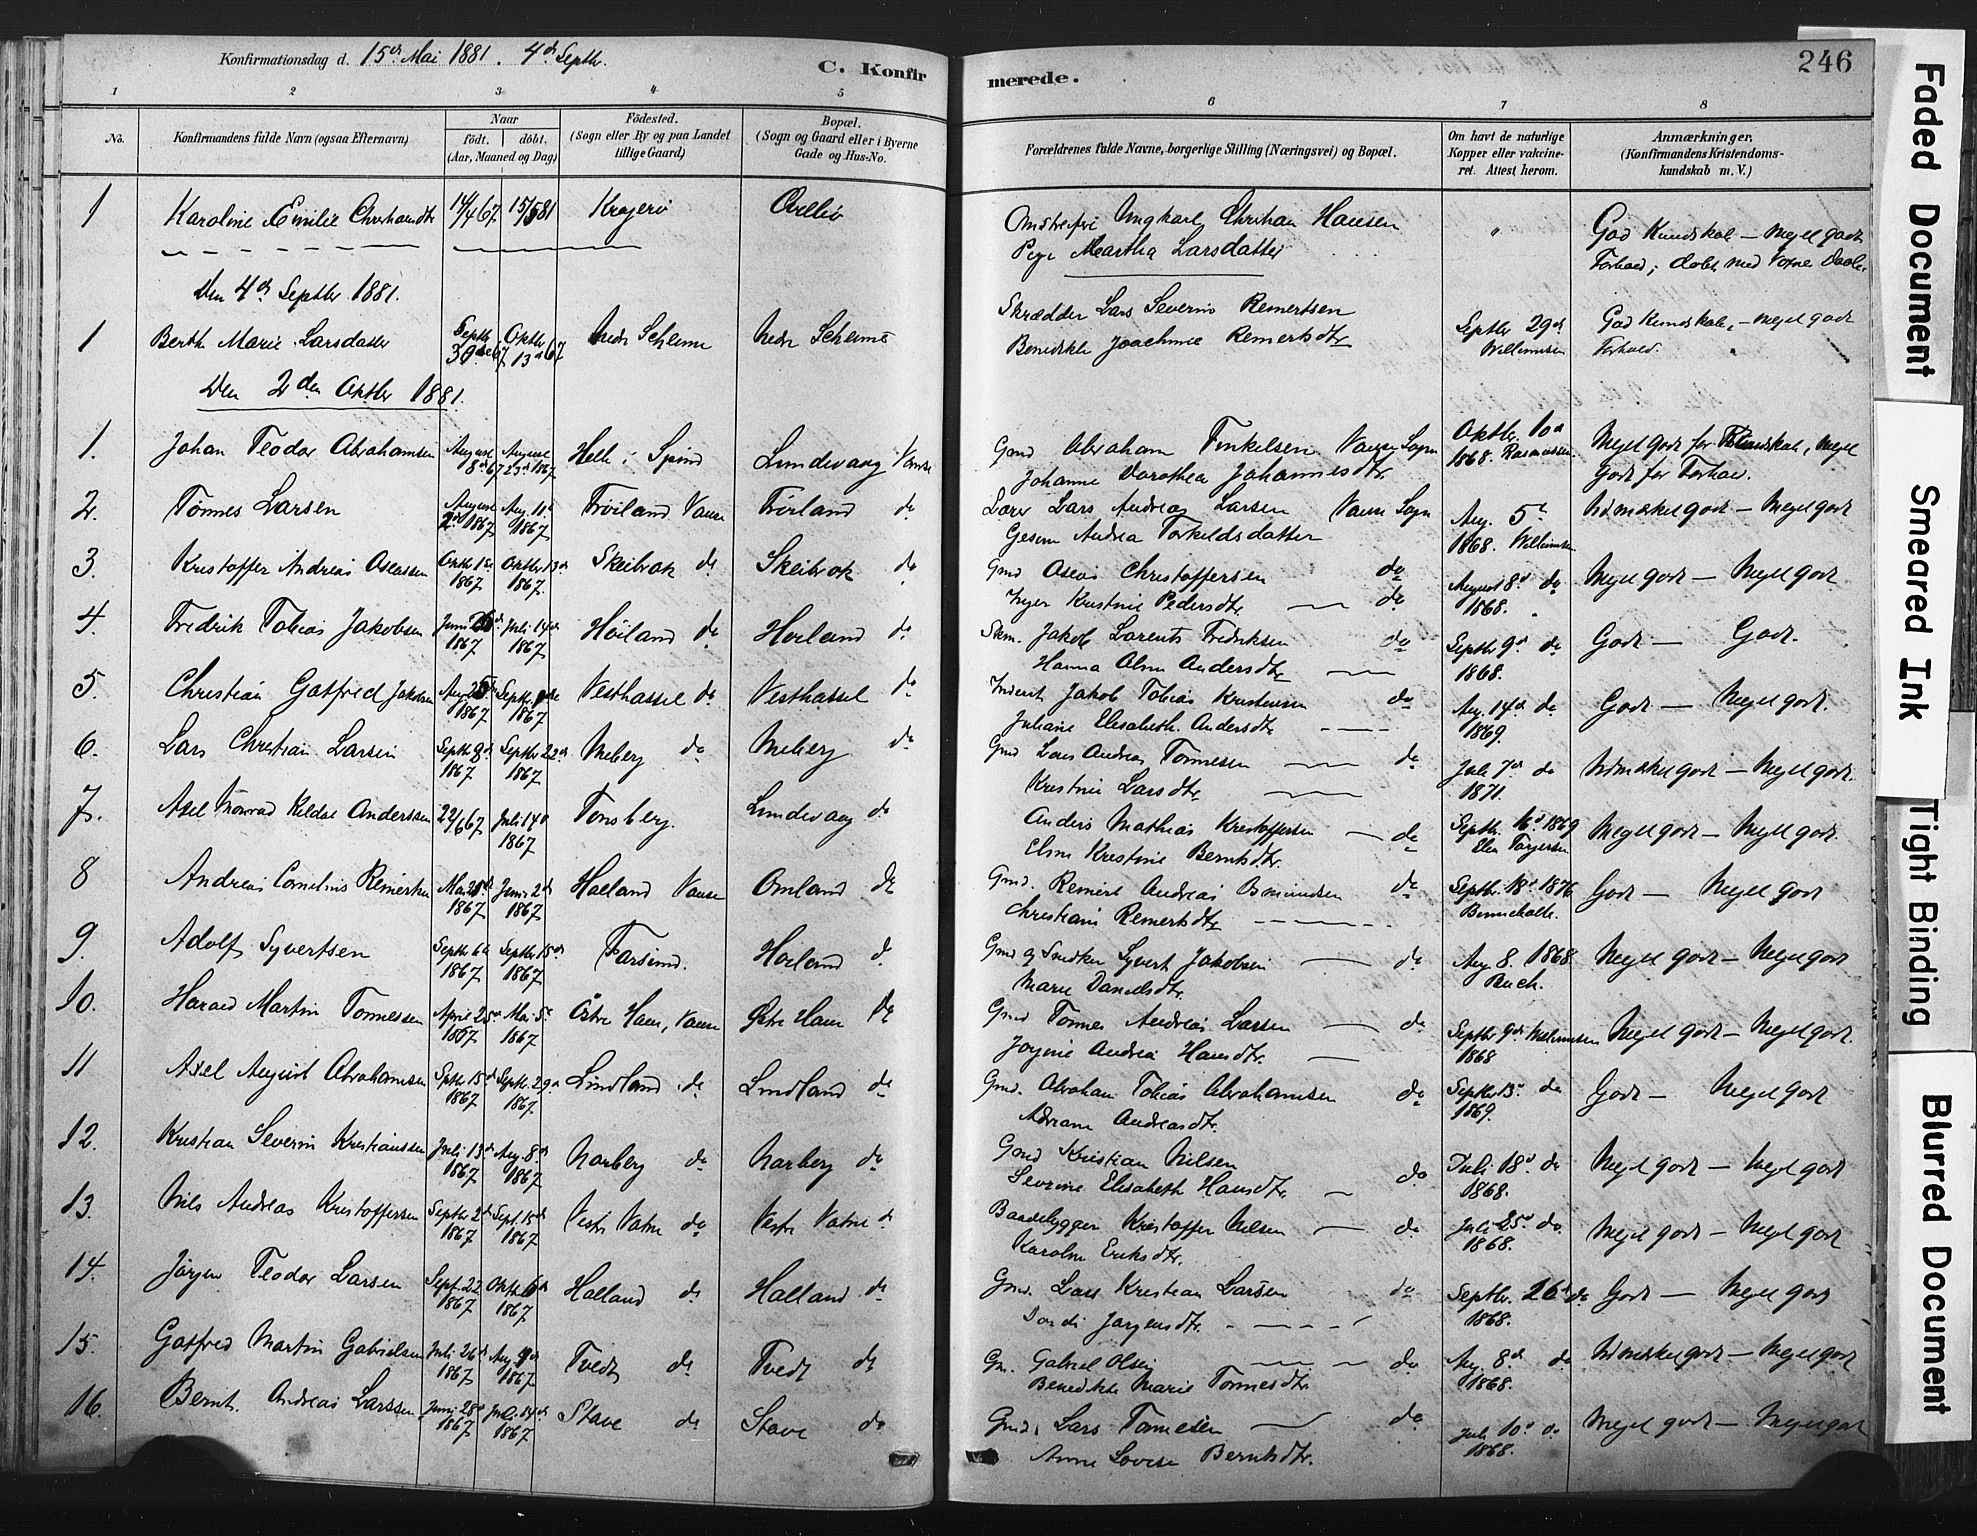 Konfirmationsdag d. 15de Mai 1881. 4de Septbr.
C. Konfirmerede.
246
1 2 3 4 5 6 7 8
No.
Konfirmandens fulde Navn (ogsaa Efternavn)
Naar
født. døbt.
(Aar, Maaned og Dag)
Fødested.
(Sogn eller By og paa Landet
tillige Gaard)
Bopæl.
(Sogn og Gaard eller i Byerne
Gade og Hus-No.
Forældrenes fulde Navne, borgerlige Stilling (Næringsvei) og Bopæl.
Om havt de naturlige
Kopper eller vakcine-
ret. Attest herom.
Anmærkninger.
(Konfirmandens Kristendoms-
kundskab m. V.)
1 Karoline Emilie 14/4 67 15/5 81 Kragerø Ungkarl Christian Hansen " God Kundskab — Meget godt
Pige Martha Larsdatter Forhold; døbt med
Den 4de Septbr 1881.
1 Berthe Marie Larsdatter Septbr 30 67 Oktbr 13de 67 Nedre Nedre Skrædder Lars Severin Remertsen Septbr 29de God Kundskab, — meget godt
Joachime Remertsdtr. Willumsen Forhold.
Den 2den Oktbr 1881.
1. Johan Teodor Abrahamsen August 18de 67 August 25de 1867 Helle i Spind Lundevaag Vanse Gmd Abraham Tinkelsen Vanse Sogn Oktbr 10de Meget godt for Kundskab, meget
Johanne Dorothea Johannesdtr. 1868. Rasmussen godt for Forhold.
2. Tønnes Larsen August 2de 1867 Aug. 11de 1867 Frøiland Vanse Frøiland do Lars Andreas Larsen Vanse Sogn Aug. 5te Udmærket godt — Meget godt
Andrea Torkildsdatter 1868. Willumsen
3. Kristoffer Andreas Oseassen Oktbr 1ste 1867 Oktbr 13de 1867. Skeibrok do Skeibrok do Gmd Oseas Christoffersen do August 8de do Meget godt — Meget godt
Inger Kristine Pedersdtr. do 1868.
4. Fredrik Tobias Jakobsen Juni 1867 Juli 14de 1867 Høiland do Høiland do Jakob Lorents Fredriksen do Septbr 9de do Godt — Godt.
Hanna Andersdtr. 1868.
5. Christian Gotfred Jakobsen Aug 25de 1867 Septbr. 1867 Vesthassel do Vesthassel do Jakob Tobias Kristensen do Aug. 14de do Godt — Meget godt.
Juliane Elisabeth Andersdtr 1869.
6. Lars Christian Larsen Septbr 8de 1867 Septbr 22de 1867 Meberg do Meberg do Gmd Lars Andreas Tønnesen do Juli 7de do Udmærket godt — Meget godt.
Kristine Larsdtr. 1871.
7. Axel Monrad Anderssen 22/6 67 Juli 14de 1867 Tønsberg. Lundevaag do Anders Mathias Kristoffersen do Septbr. 16de 1869 Meget godt — Meget godt.
Kristine Berntsdtr. Torjersen
8 Andreas Cornelius Remertsen Mai 1867 Juni 2de 1867 Vanse Omland do Gmd. Remert Andreas do Septbr. 18de 1876 Godt — Meget godt
Christiane Remertsdtr
9. Adolf Syvertsen Septbr 6te 1867 Septbr 15de 1867 Farsund. Høiland do Gmd og Snedker Syvert Jakobsen do Aug 8. 1868 Meget godt — Meget godt
Marie Danielsdtr. Buch.
10. Harald Martin Tønnessen April 25de 1867 Mai 5te 1867 Østre Ham, Vanse Østre Ham do Gmd Tønnes Andreas Larsen do Septbr 9de Willumsen Meget godt — Meget godt.
Andrea Hansdtr. 1868
11 Axel August Abrahamsen Septbr 15de 1867 Septbr. 29de 1867 Lindland do Lindland do Gmd. Abraham Tobias Abrahamsen do Septbr 13de do Godt — Meget godt
Adriane Andreasdtr. 1869.
12. Kristian Severin Kristianssen Juli 13de 1867 Aug 8de 1867 Narberg do Narberg do Gmd Kristian Nilsen do Juli 18de do Meget godt — Meget godt
Severine Elisabeth Hansdtr. 1868.
13. Nils Andreas Kristoffersen Septbr 2de 1867 Sept. 15de 1867 Vestre Vatne do Vestre Vatne do Baadebygger Kristoffer Nilsen do Juli 25de do Meget godt — Meget godt
Karoline Eriksdtr. 1868.
14. Jørgen Teodor Larsen Sept. 22 1867 Oktbr 6te 1867 Holland do Holland do Gmd. Lars Kristian Larsen do Septbr. 26de do Godt — Meget godt
Jørgensdtr. 1868.
15. Gotfred Martin Gabrielsen Juli 26de 1867 Aug 1867 Tvedt do Tvedt do Gm. Gabriel Olsen do Aug. 8de do Udmærket godt — Meget godt
Benedikte Marie Tønnesdtr. 1868.
16. Bernt Andreas Larssen Juni 28de 1867 Juli 14de 1867 Stave do Stave do Gmd. Lars Tønnesen do Juli 10de do Meget godt — Meget godt
Anne Lovise Berntsdtr. 1868.
Faded Document
Smeared Ink
Tight Binding
Blurred Document